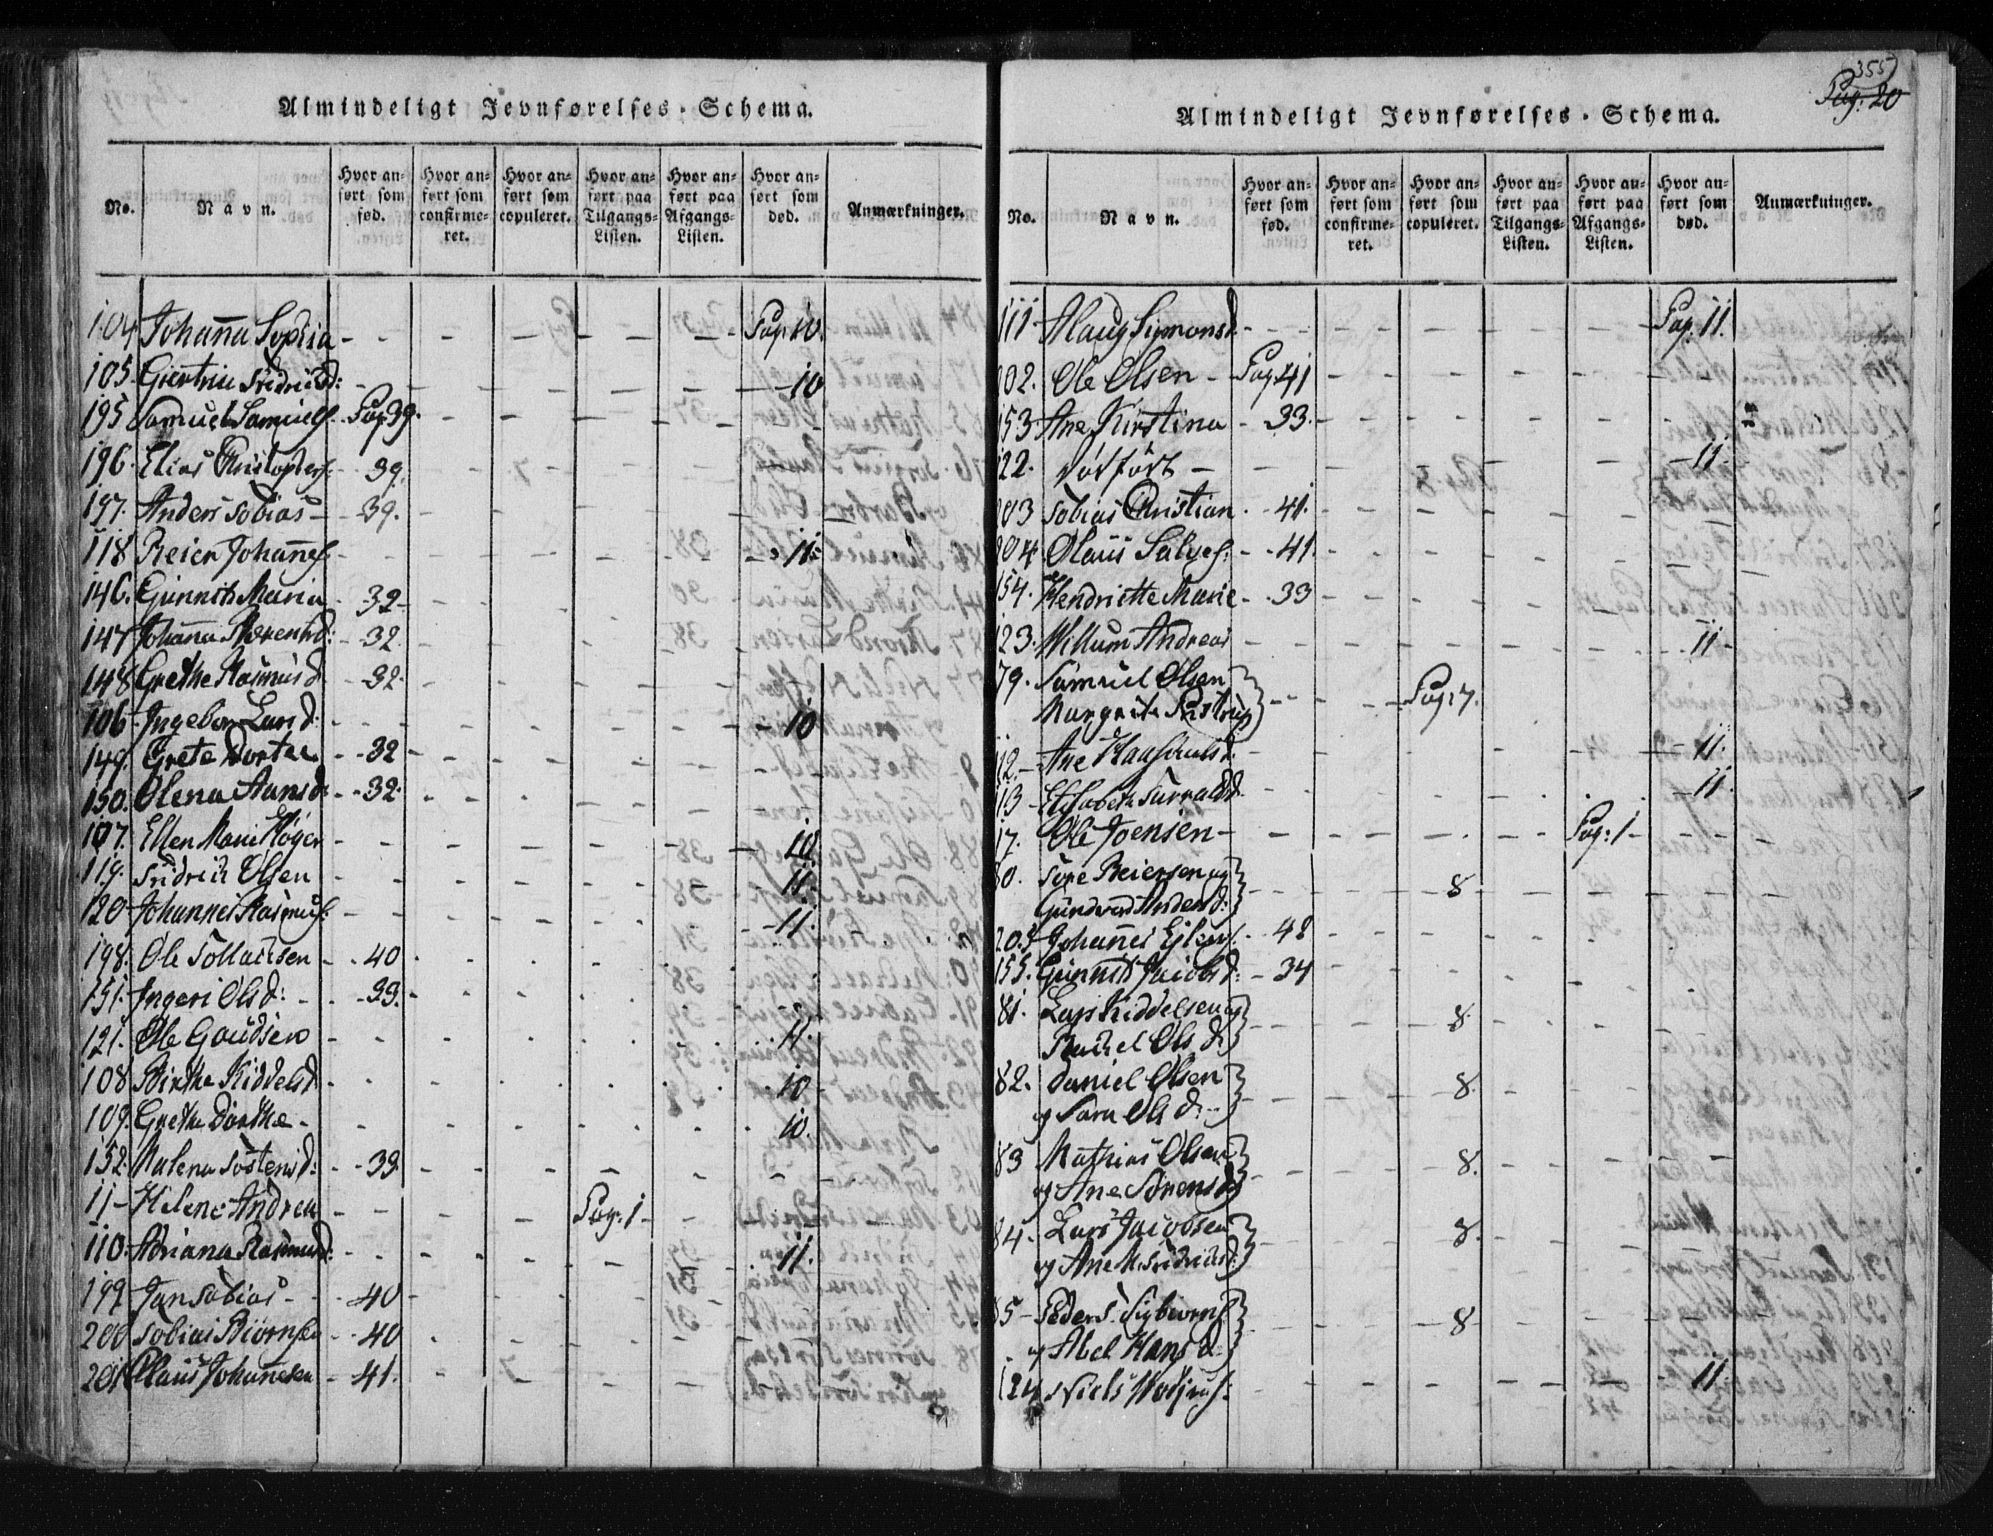 Almindeligt Jevnførelses-Schema.
No. Navn. Hvor anført som fød. Hvor anført som confirmeret. Hvor anført som copuleret. Hvor anført paa Tilgangs-Listen. Hvor anført paa Afgangs-Listen. Hvor anført som død. Anmærkninger.
104 Johanna Sophia - - - - - Pag. 10.
105. Giertrue Fridrichsd: - - - - - 10
195 Samuel Samuels. Pag 39. - - - - -
196. Elias Christophers. - 39.
197. Anders Tobias - 39.
118 Reier Johannes - - - - - 11.
146. Gunnild Maria 32
147 Johanna Thorensd: - 32.
148 Grethe Rasmusd 32.
106. Ingebor Larsd: - - - - - 10
149. Grete Dortea - 32
150. Olena Hansd - 32.
107. Ellen Marie Høyer - - - - - 10
119. Fridrich Olsen - - - - - 11.
120 Johannes Rasmus. - - - - - 11.
198. Ole Tollaksen - 40.
151. Ingeri Olsd: - 33.
121. Ole Gaudsen - - - - - 11.
108 Birthe Kiddelsd. - - - - - 10
109. Grethe Dorthe - - - - - 10.
152. Malena Tostensd: - 33.
11 - Helene Andrea - - - Pag. 1 - - -
110. Adriana Rasmusd: - - - - - 11.
199 Jan Tobias - 40
200 Tobias Biørnsen - 40
201 Olaus Johannesen - 41.
355
Pag. 20
Almindeligt Jevnførelses-Schema.
No. Navn. Hvor anført som fød. Hvor anført som confirmeret. Hvor anført som copuleret. Hvor anført paa Tilgangs-Listen. Hvor anført paa Afgangs-Listen. Hvor anført som død. Anmærkninger.
111 Simonsd. - - - - - Pag. 11.
202. Ole Olsen - Pag. 41
153 Ane Kirstina - 33.
122. dødfødt - - - - - 11.
203 Tobias Christian. - 41.
204 Olaus Salves. - 41
154. Hendriette Marie - 33
123. Willum Andreas - - - - - 11.
79. Samuel Olsen
Margrete - - - Pag. 7.
112. - Ane - - - - 11.
113 Elisabeth - - - - 11.
17. Ole Joensen - - - - - Pag: 1 - - -
80. Tore Reiersen og
Gundvor Andersd: - - - 8
205 Johannes Eilers. - 42
155. Gunnild Jacobsd: - 34
81. Lars Kiddelsen og
Rachel Olsd: - - - 8.
82. Daniel Olsen
og Sara Olsd: - - - 8.
83 Mathias Olsen
og Ane Sørensd - - - 8.
84. Lars Jacobsen
og Ane M. Fridrichsd: - - - 8.
85 - Peder S. Sigbiørns.
og Abel Hansd. - - - 8
124 Niels - - - - - 11.